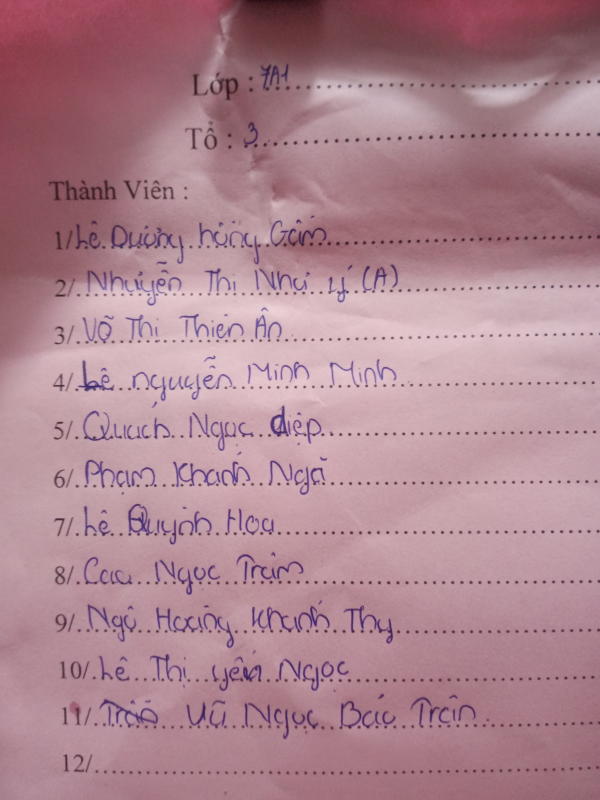 Lớp : 7A1
Tổ : 3
Thành Viên :
1/ Lê Dương hồng Gấm
2/ Nhuyễn Thị Như ý (A)
3/ Võ Thị Thiên Ân
4/ Lê nguyễn Minh Minh
5/ Quách Ngọc diệp
6/ Phạm Khánh Ngà
7/ Lê Quỳnh Hoa
8/ Cao Ngọc Trâm
9/ Ngô Hoàng Khánh Thy
10/ Lê Thị yến Ngọc
11/ Vũ Ngọc Bảo Trân
12/